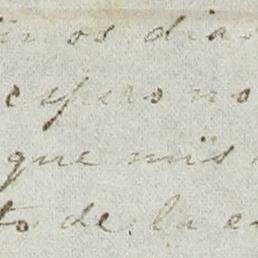 os dias
espero no
que mis
to de la